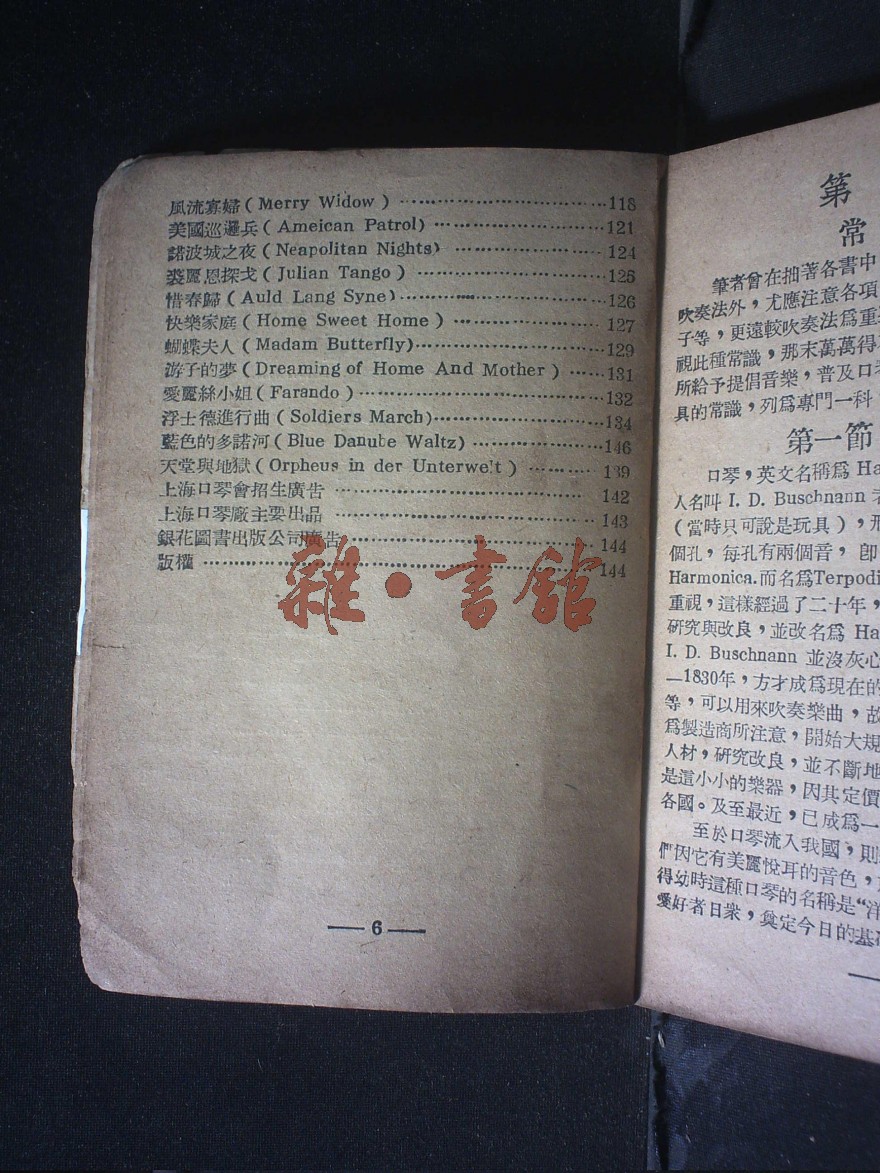 風流寡婦(Merry Widow) ······························118
美國巡邏兵(Ameican Patrol) ·························121
諾波城之夜(Neapolitan Nights) ······················124
裘麗恩探戈(Julian Tango) ···························125
惜春歸(Auld Lang Syne)·····························126
快樂家庭(Home Sweet Home) ·······················127
蝴蝶夫人(Madam Butterfly)···························129
游子的夢(Dreaming of Home And Mother) ······131
愛麗絲小姐(Farando) ······························132
浮士德進行曲(Soldiers March)·······················134
藍色的多諾河(Blue Danube Waltz) ···················146
天堂與地獄(Orpheus in der Unterwelt) ··········139
上海口琴會招生廣告 ······························142
上海口琴廠主要出品 ······························143
銀花圖書出版公司廣告 ·····························144
版權 ··············································144
雜·書館
— 6 —
第
常
筆者曾在拙著各書中
吹奏法外，尤應注意各項
子等，更遠較吹奏法爲重
視此種常識，那末萬萬得
所給予提倡音樂，普及口
具的常識，列爲專門一科，
第一節
口琴，英文名稱爲 Ha
人名叫 I. D. Buschnann
（當時只可說是玩具），形
個孔，每孔有兩個音，卽
Harmonica.而名爲Terpodi
重視，這樣經過了二十年，
研究與改良，並改名爲 Ha
I. D. Buschnann 並沒灰心
—1830年，方才成爲現在的
等，可以用來吹奏樂曲，故
爲製造商所注意，開始大規
人材，研究改良，並不斷地
是這小小的樂器，因其定價
各國。及至最近，已成爲一
至於口琴流入我國，則
們因它有美麗悅耳的音色，
得幼時這種口琴的名稱是“洋
愛好者日衆，奠定今日的基